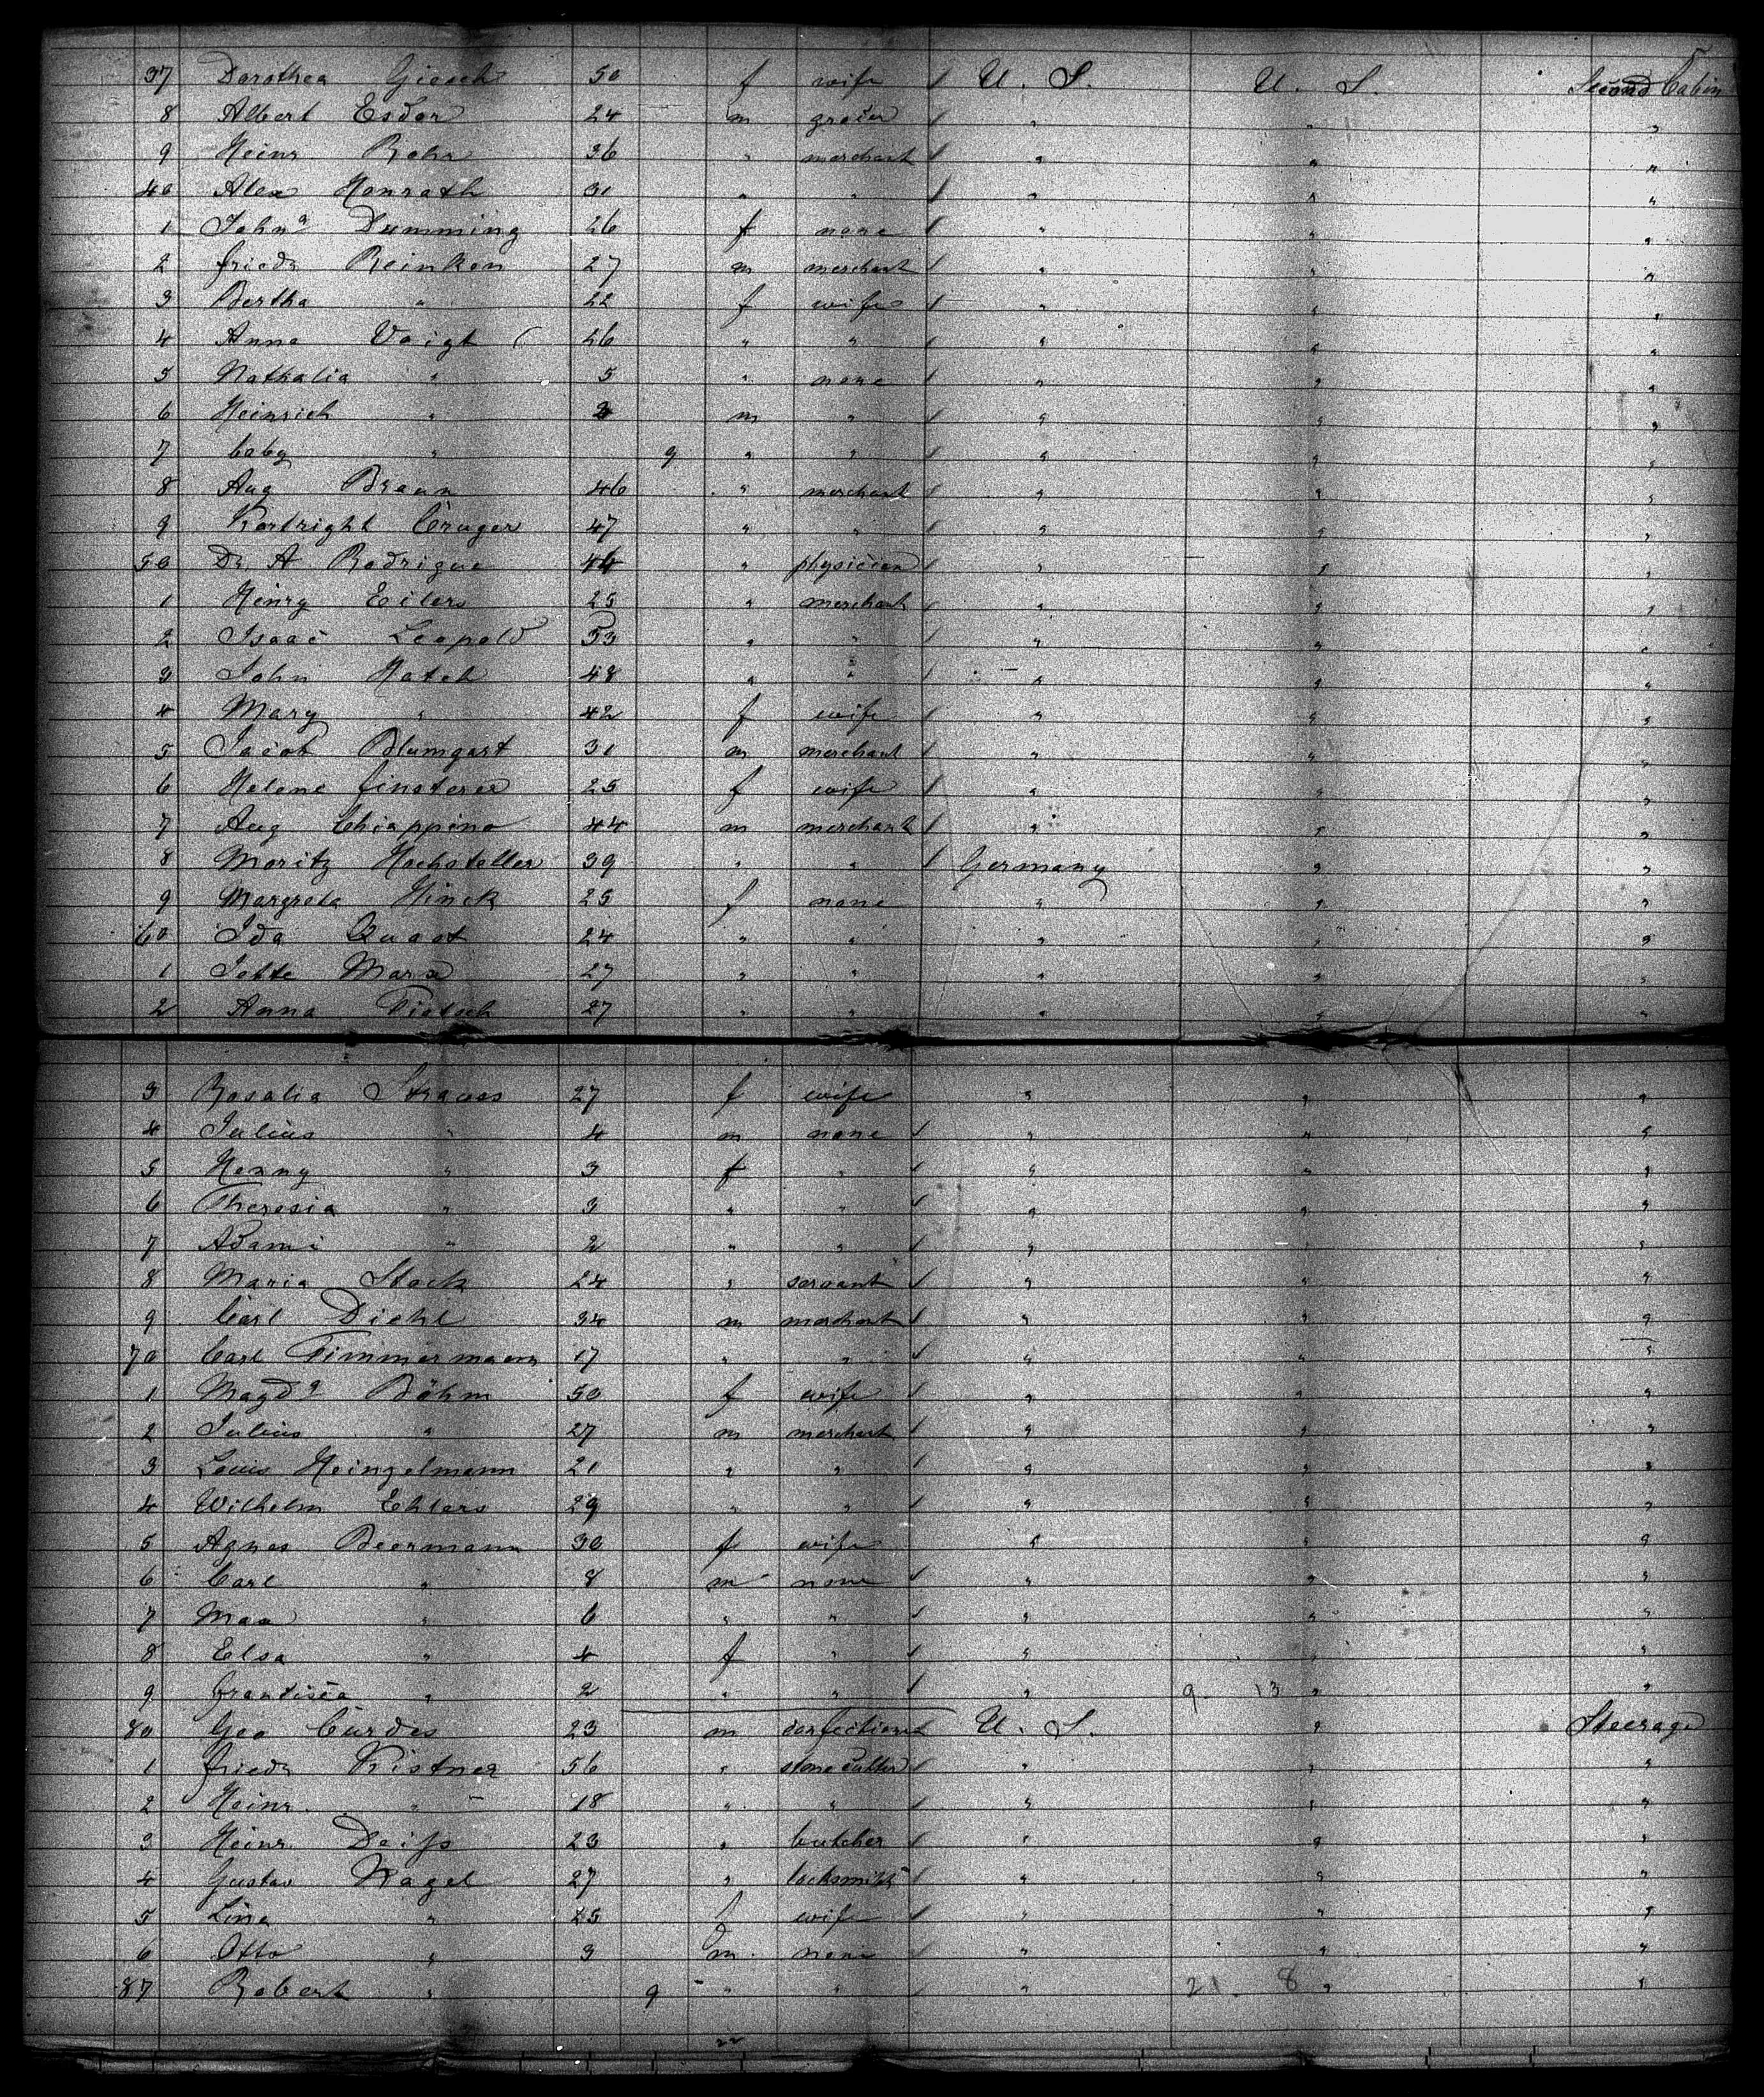 37 Dorothea Giesch 50 f wife / U. S. U. S. Second Cabin
8 Albert Esdor 24 m grocer / " " "
9 Heinr. Rohr 36 " merchant / " " "
40 Alex Honrath 31 " " / " " "
1 Johna Dumming 26 f none / " " "
2 Friedr Reinken 27 m merchant / " " "
3 Bertha " 22 f wife / " " "
4 Anna Voigt 26 " " / " " "
5 Nathalia " 5 " none / " " "
6 Heinrich " m " / " " "
7 baby " 9 " " / " " "
8 Aug Braun 46 " merchant / " " "
9 Kortright Cruger 47 " " / " " "
50 Dr A Rodrigue 44 " physician / " " "
1 Henry Eilers 25 " merchant / " " "
2 Isaac Leopold 53 " " / " " "
3 John Hatch 48 " " / " " "
4 Mary " 42 f wife / " " "
5 Jacob Blumgart 31 m merchant / " " "
6 Helene Finsterer 25 f wife / " " "
7 Aug Chiappino 44 m merchant / " " "
8 Moritz Hochstetter 39 " " / Germany " "
9 Margreta Hinck 25 f none " " "
60 Ida Quast 24 " " " " "
1 Jette Marx 27 " " " " "
2 Anna Tietsch 27 " " " " "
3 Rosalia Strauss 27 f wife " " "
4 Julius " 4 m none / " " "
5 Henny " 3 f " / " " "
6 Theresia " 3 " " / " " "
7 " 2 " " / " " "
8 Maria Stock 24 " servant / " " "
9 Carl Diehl 34 m merchant / " " "
70 Carl Timmermann 17 " " / " " "
1 Magda Böhm 50 f wife / " " "
2 Julius " 27 m merchant / " " "
3 Louis Heingelmann 21 " " / " " "
4 Wilhelm Ehlers 29 " " / " " "
5 Agnes Beermann 30 f wife " " "
6 Carl " 8 m none / " " "
7 Max " 6 " " / " " "
8 Elsa " 4 f " / " " "
9 " 2 " " / " 9 13 " "
80 Geo Curdes 23 m confectioner U. S. " Steerage
1 Friedr Kistner 56 " stone cutter / " " "
2 Heinr. " 18 " " / " " "
3 Heinr. Deiss 23 " butcher / " " "
4 Gustav Nagel 27 " locksmith / " " "
5 Lina " 25 f wife / " " "
6 Otto " 3 m. none / " " "
87 Robert " 9 " " " 21. 8 " "